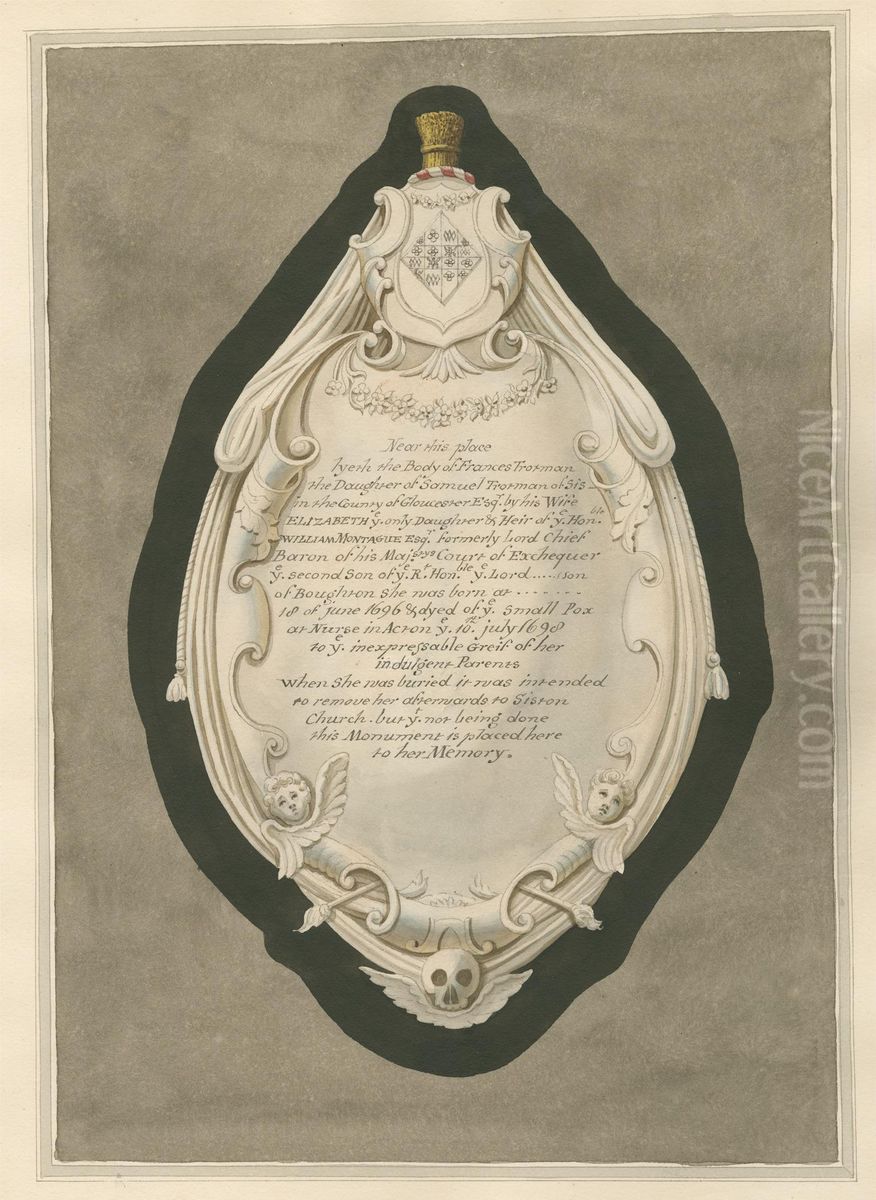 Near this place
lyeth the Body of Frances Trotman
the Daughter of Samuel Trotman of Sis-
in the County of Gloucester Esqr. by his Wife
ELIZABETH ye. only Daughter & Heir of ye. Honble.
WILLIAM MONTAGUE Esqr. formerly Lord Chief
Baron of his Majestys Court of Exchequer
ye. second Son of ye. Rt. Honble ye. Lord ..... son
of Boughton she was born at ........
18 of june 1696 & dyed of ye. small Pox
at Nurse in Acton ye. 10th. july 1698
to ye. inexpressable Greif of her
indulgent Parents
when she was buried it was intended
to remove her afterwards to Siston
Church. but yt. not being done
this Monument is placed here
to her Memory.
NiceArtGallery.com